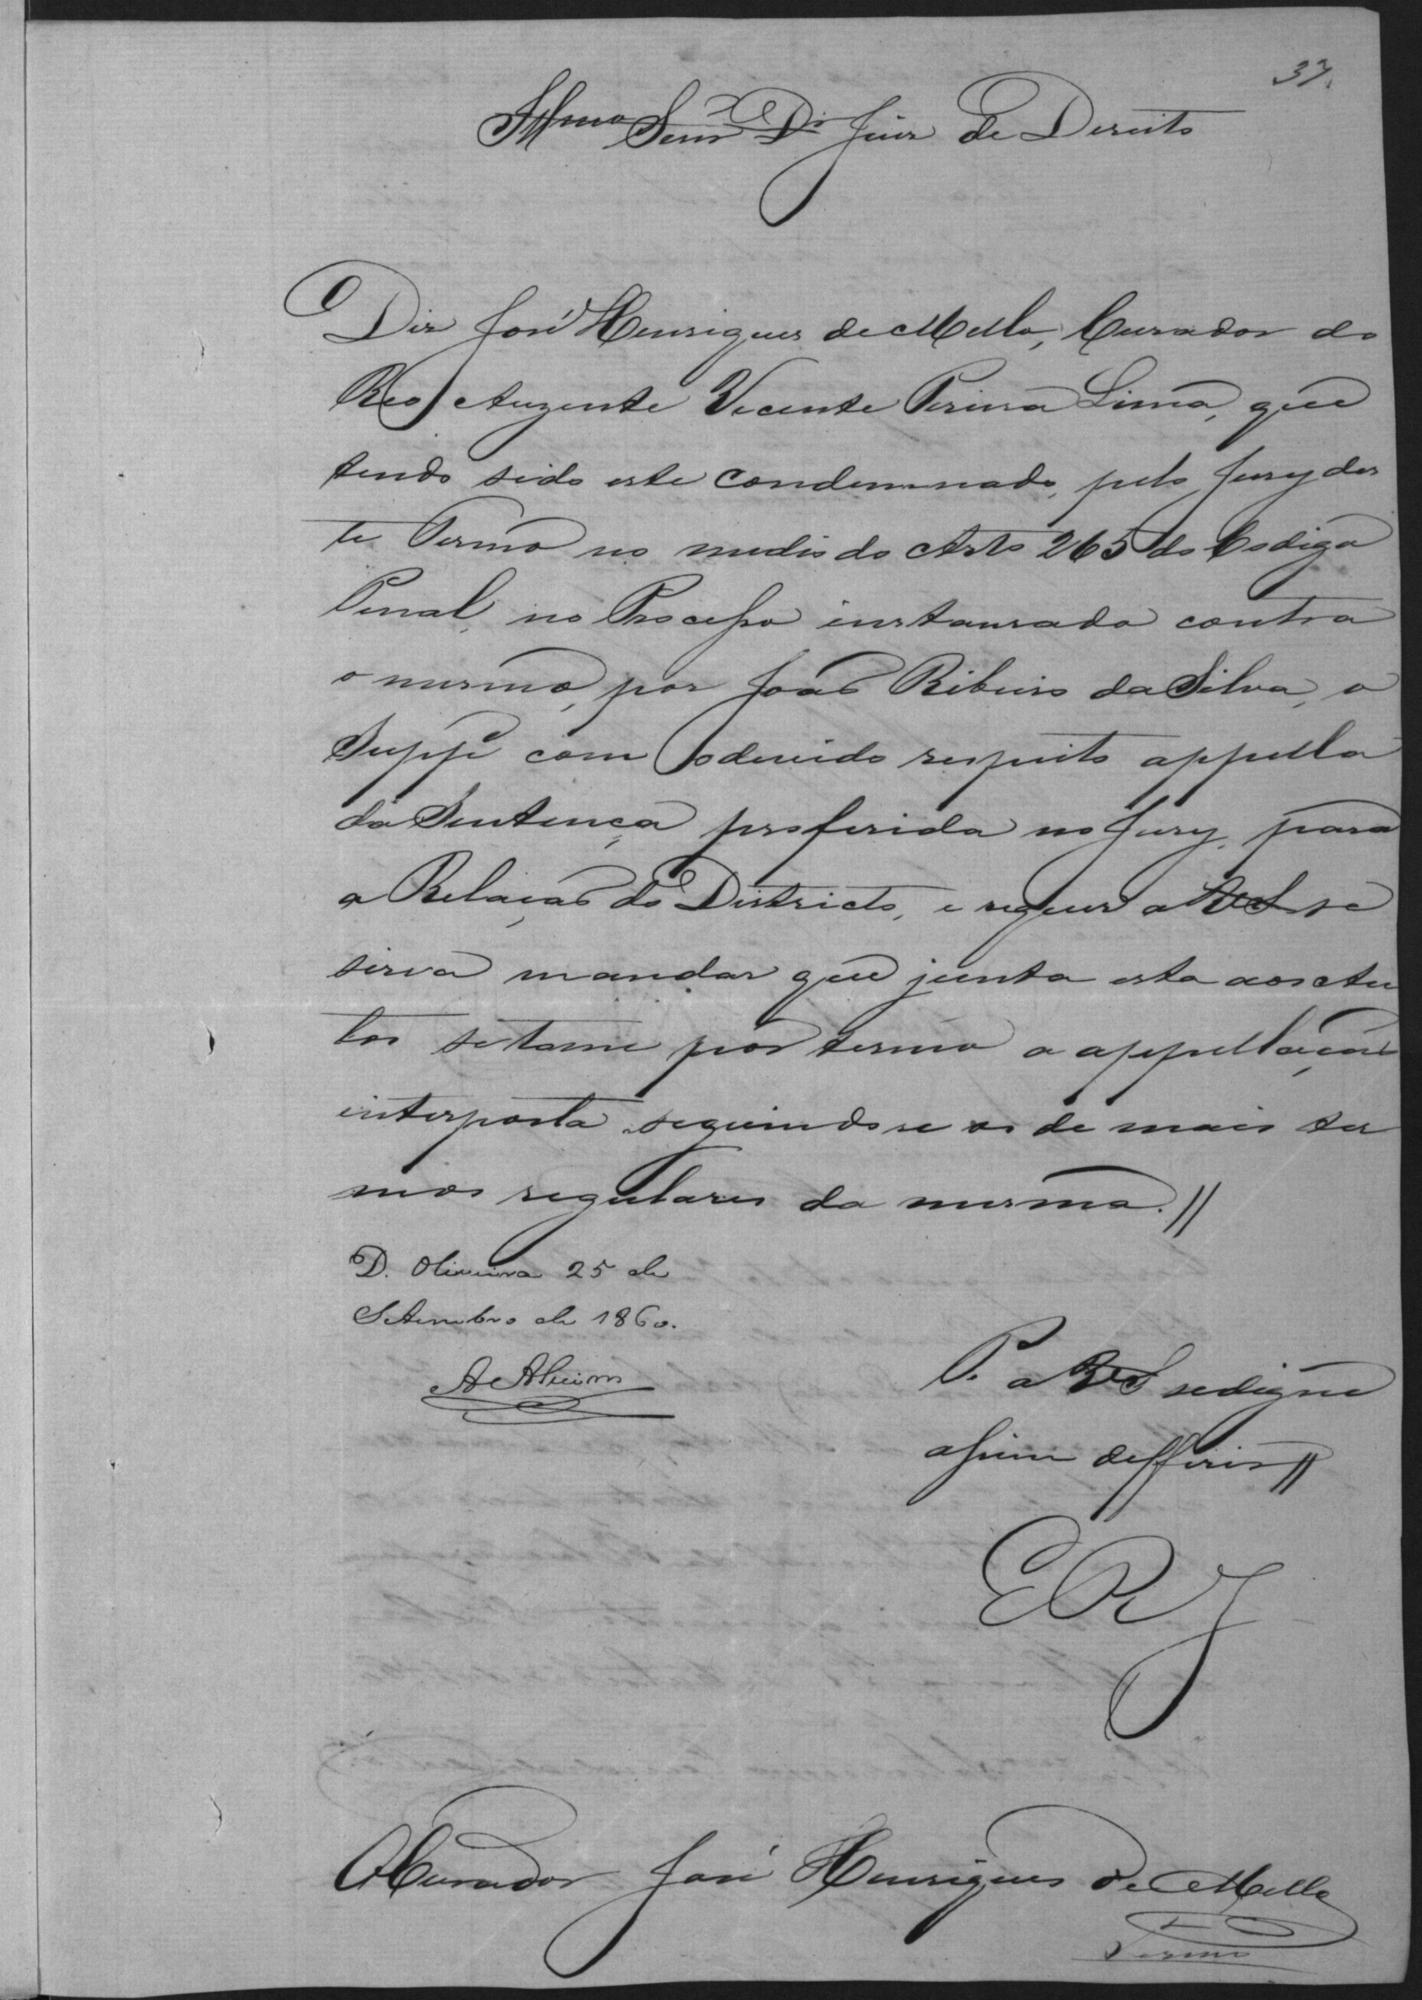 37.
Illmo Senr Dr Juiz de Direito
Diz José Henriques de Mello, Curador do
Reo Auzente Vicente Pereira Lima, que
tendo sido este condemnado, pelo Jury des
te Termo no medio do Arto 265 do Codigo
Penal, no Processo instaurado contra
o mesmo, por João Ribeiro da Silva, o
Suppe com o devido respeito appella
da Sentença proferida no Jury, para
a Relação do Districto, e requer a V. S. se
sirva mandar que junta esta aos Au
tos se tome por termo a appellação
interposta seguindo se os de mais ter
mos regulares da mesma.//
D. Oliveira 25 de
Setembro de 1860.
P. a V. S. se digne
assim defferir//
E R J
O Curador José Henriques de Mello
Termo